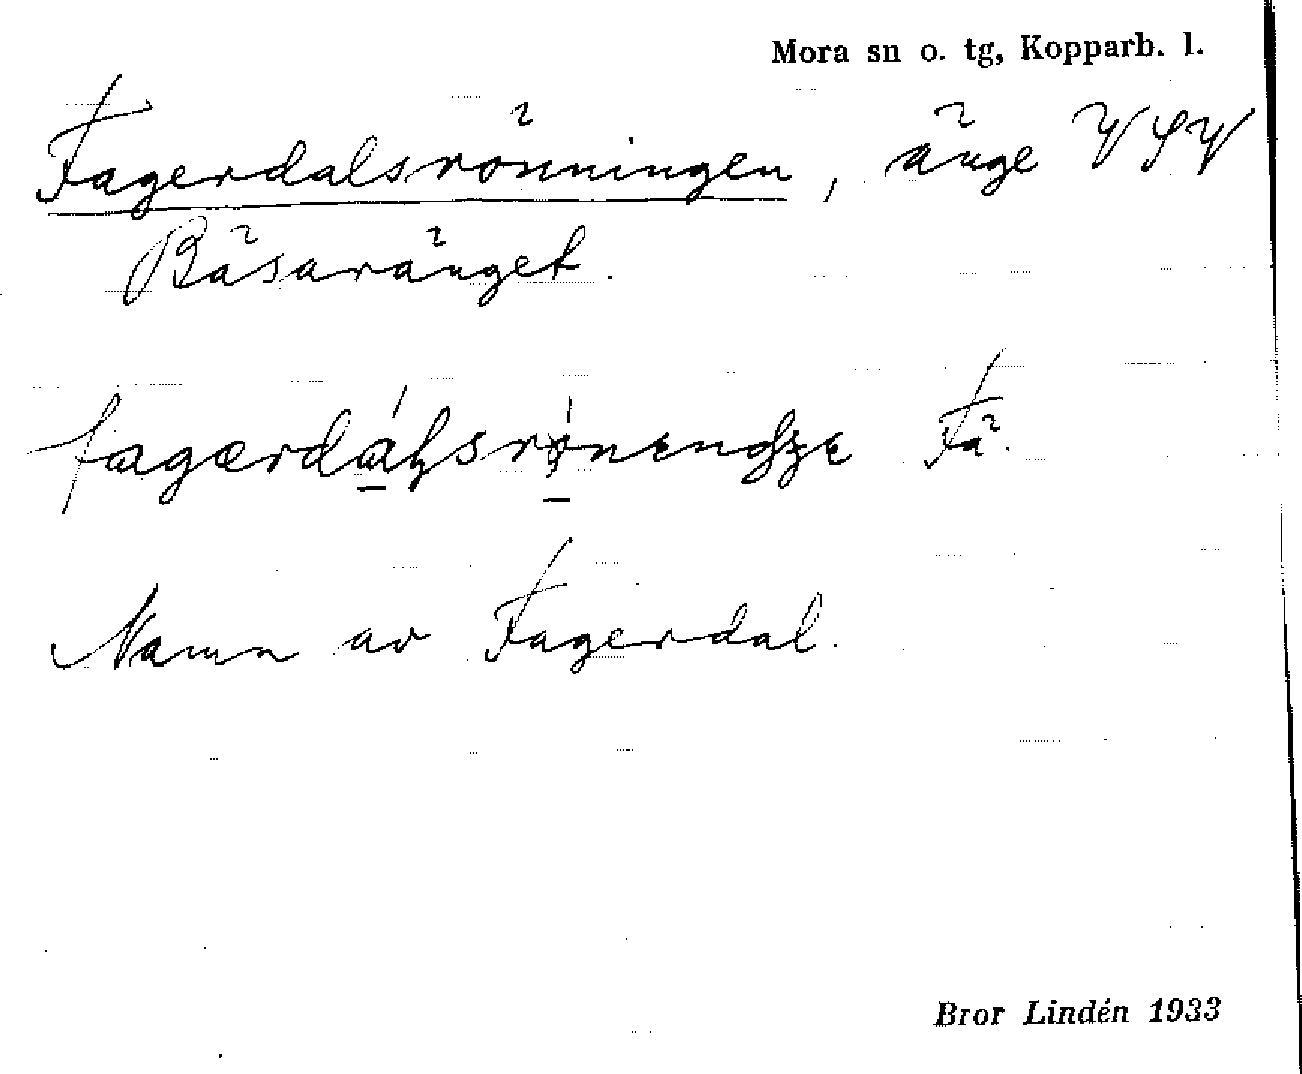 Mora sn o. tg, Kopparb. l.
Fagerdalsrönningen, änge VSV
Bäsaränget.
Fä.
Namn av Fagerdal.
Bror Lindén 1933